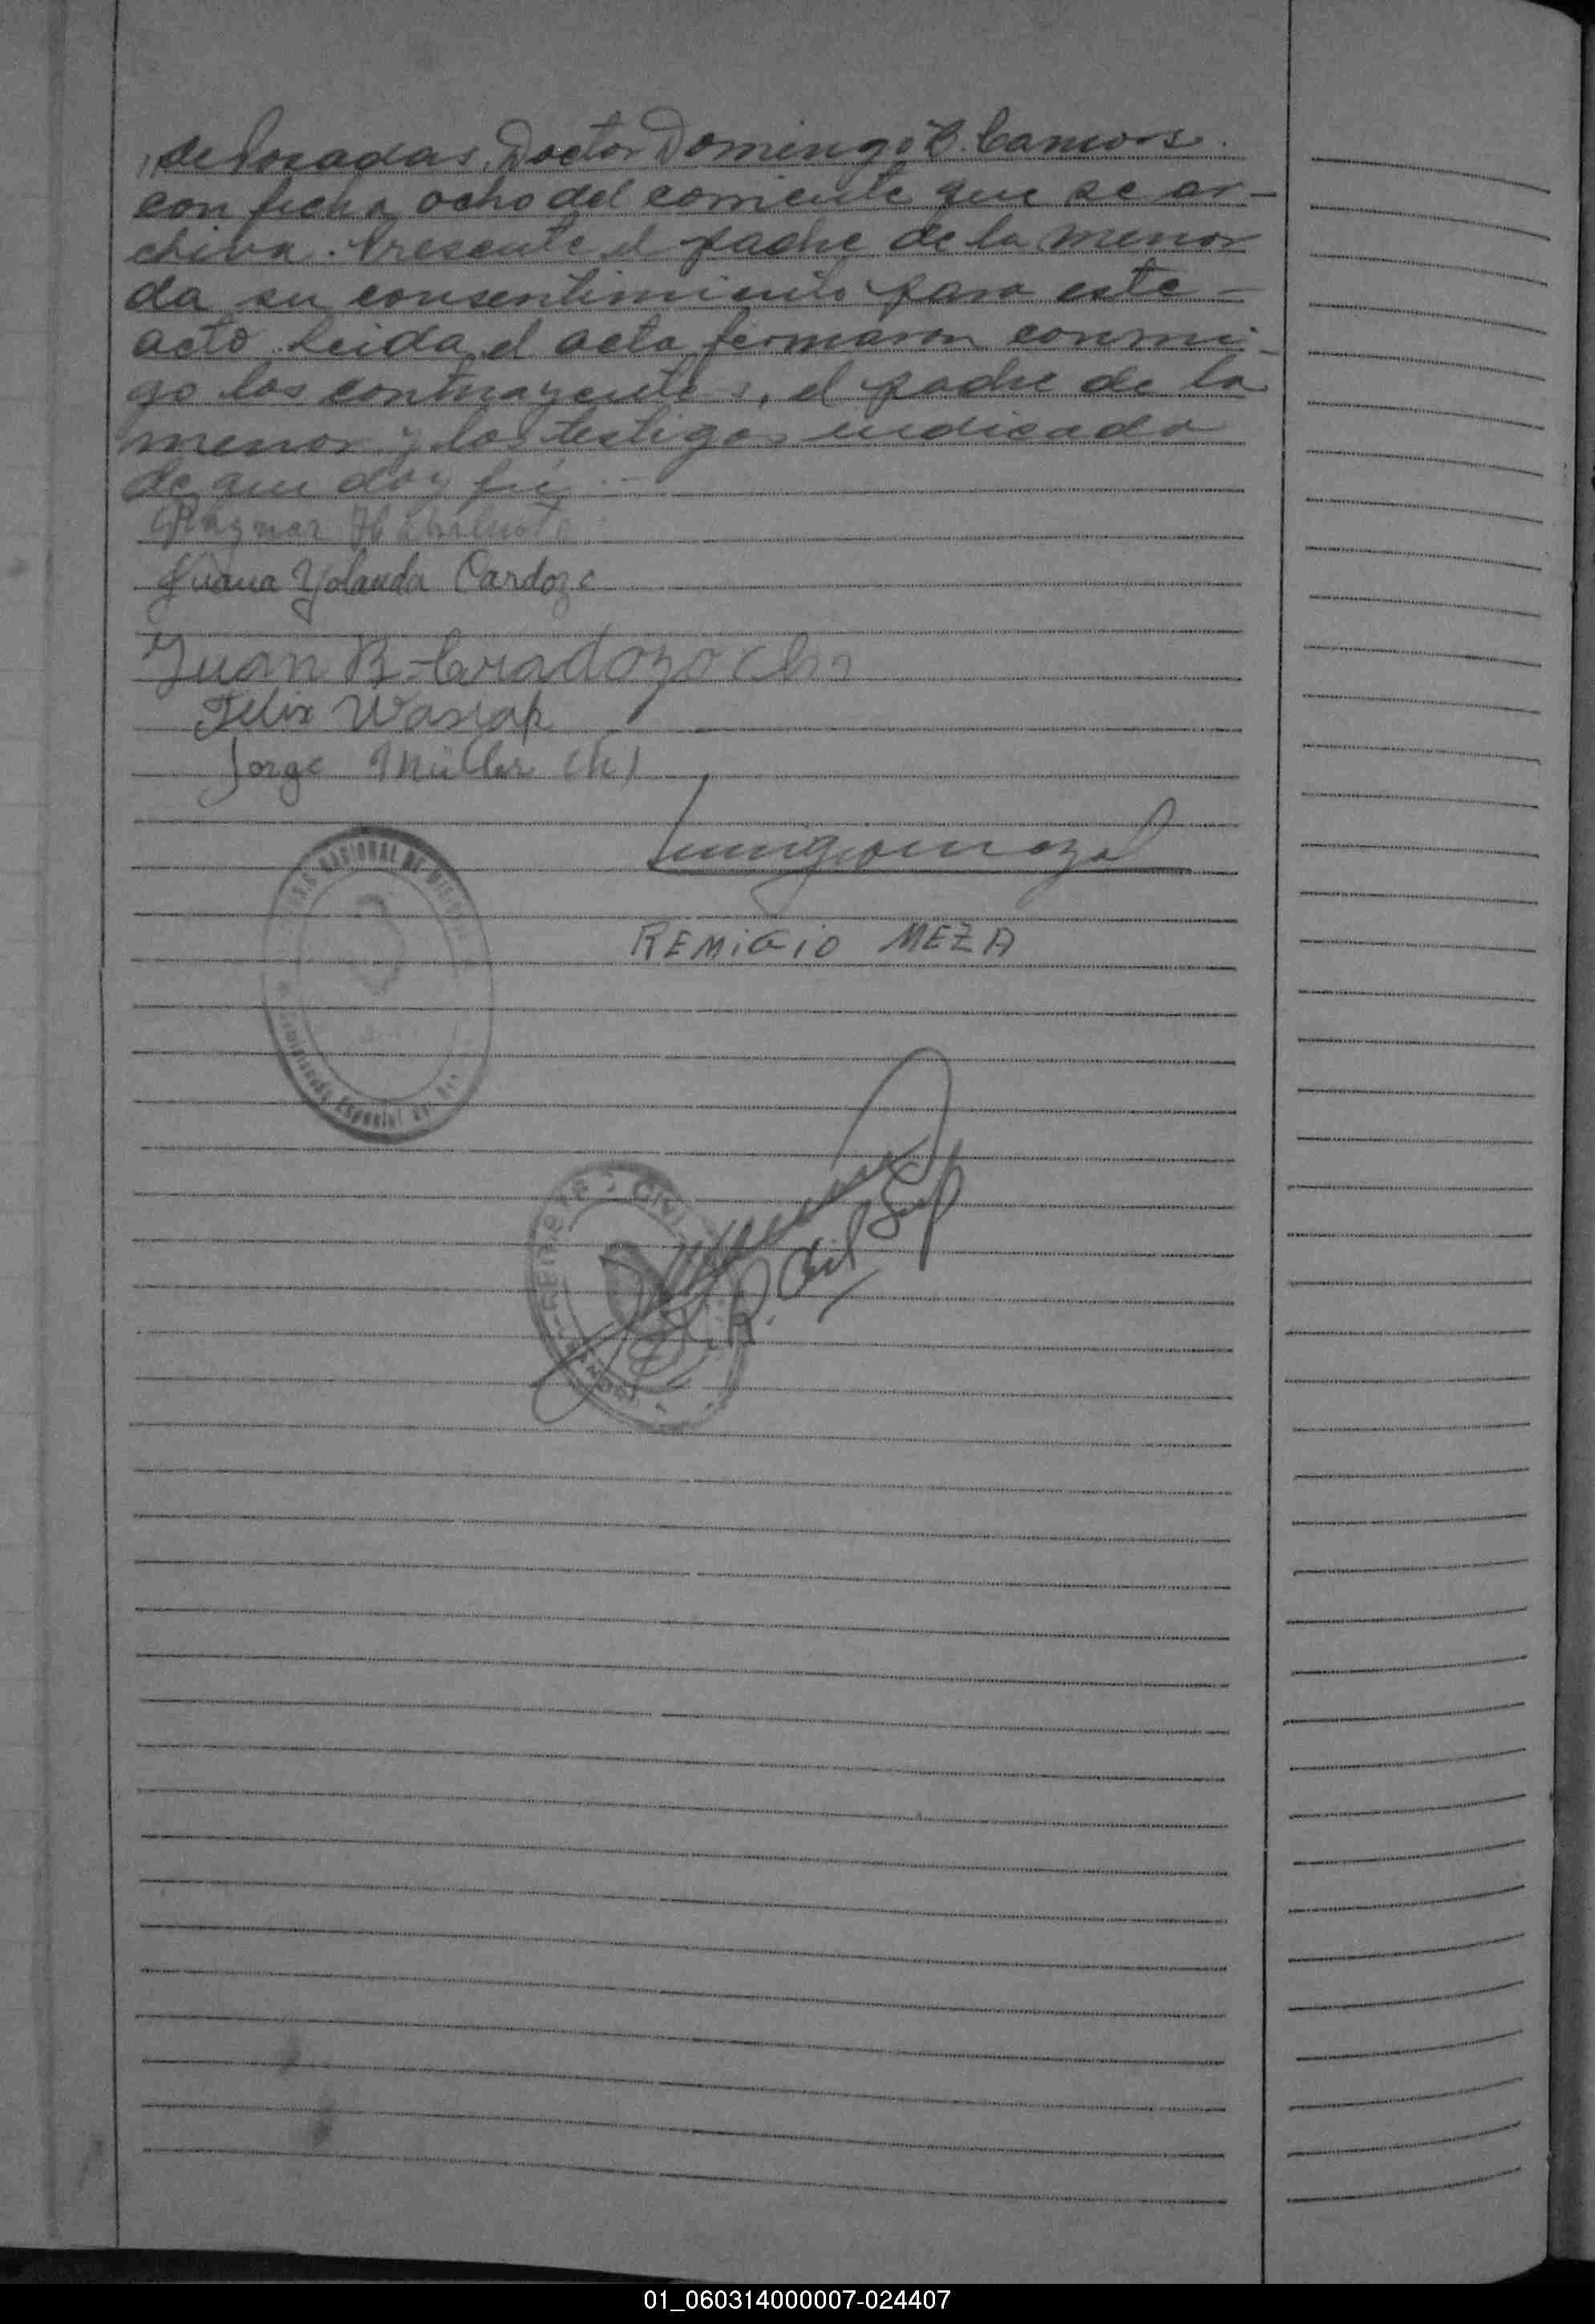 de Posadas, Doctor Domingo B.
con fecha ocho del corriente que se ar-
chiva. Presente el padre de la menor
da su consentimiento para este -
acto. Leida el acta firmaron conmi-
go los contrayentes, el padre de la
menor y los testigos indicado
de que doy fé.-
Juana Yolanda Cardozo
Juan B.
Felix Wasiak
Jorge Müller (h)
REMIGIO MEZA
NACIONAL DE
01_060314000007-024407